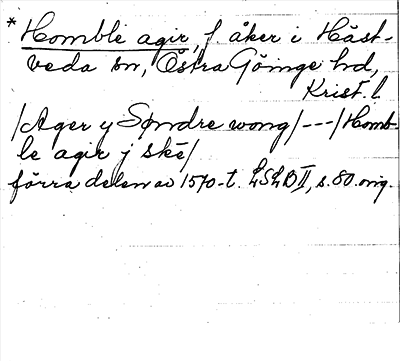 * Homble agir, f. åker i Häst-
veda sn, Östra Göinge hd,
Krist. l
/Ager y Søndre wong/ --- /Homb-
le agir j skè/
förra delen av 1570-t. LSLB II, s. 80. orig.